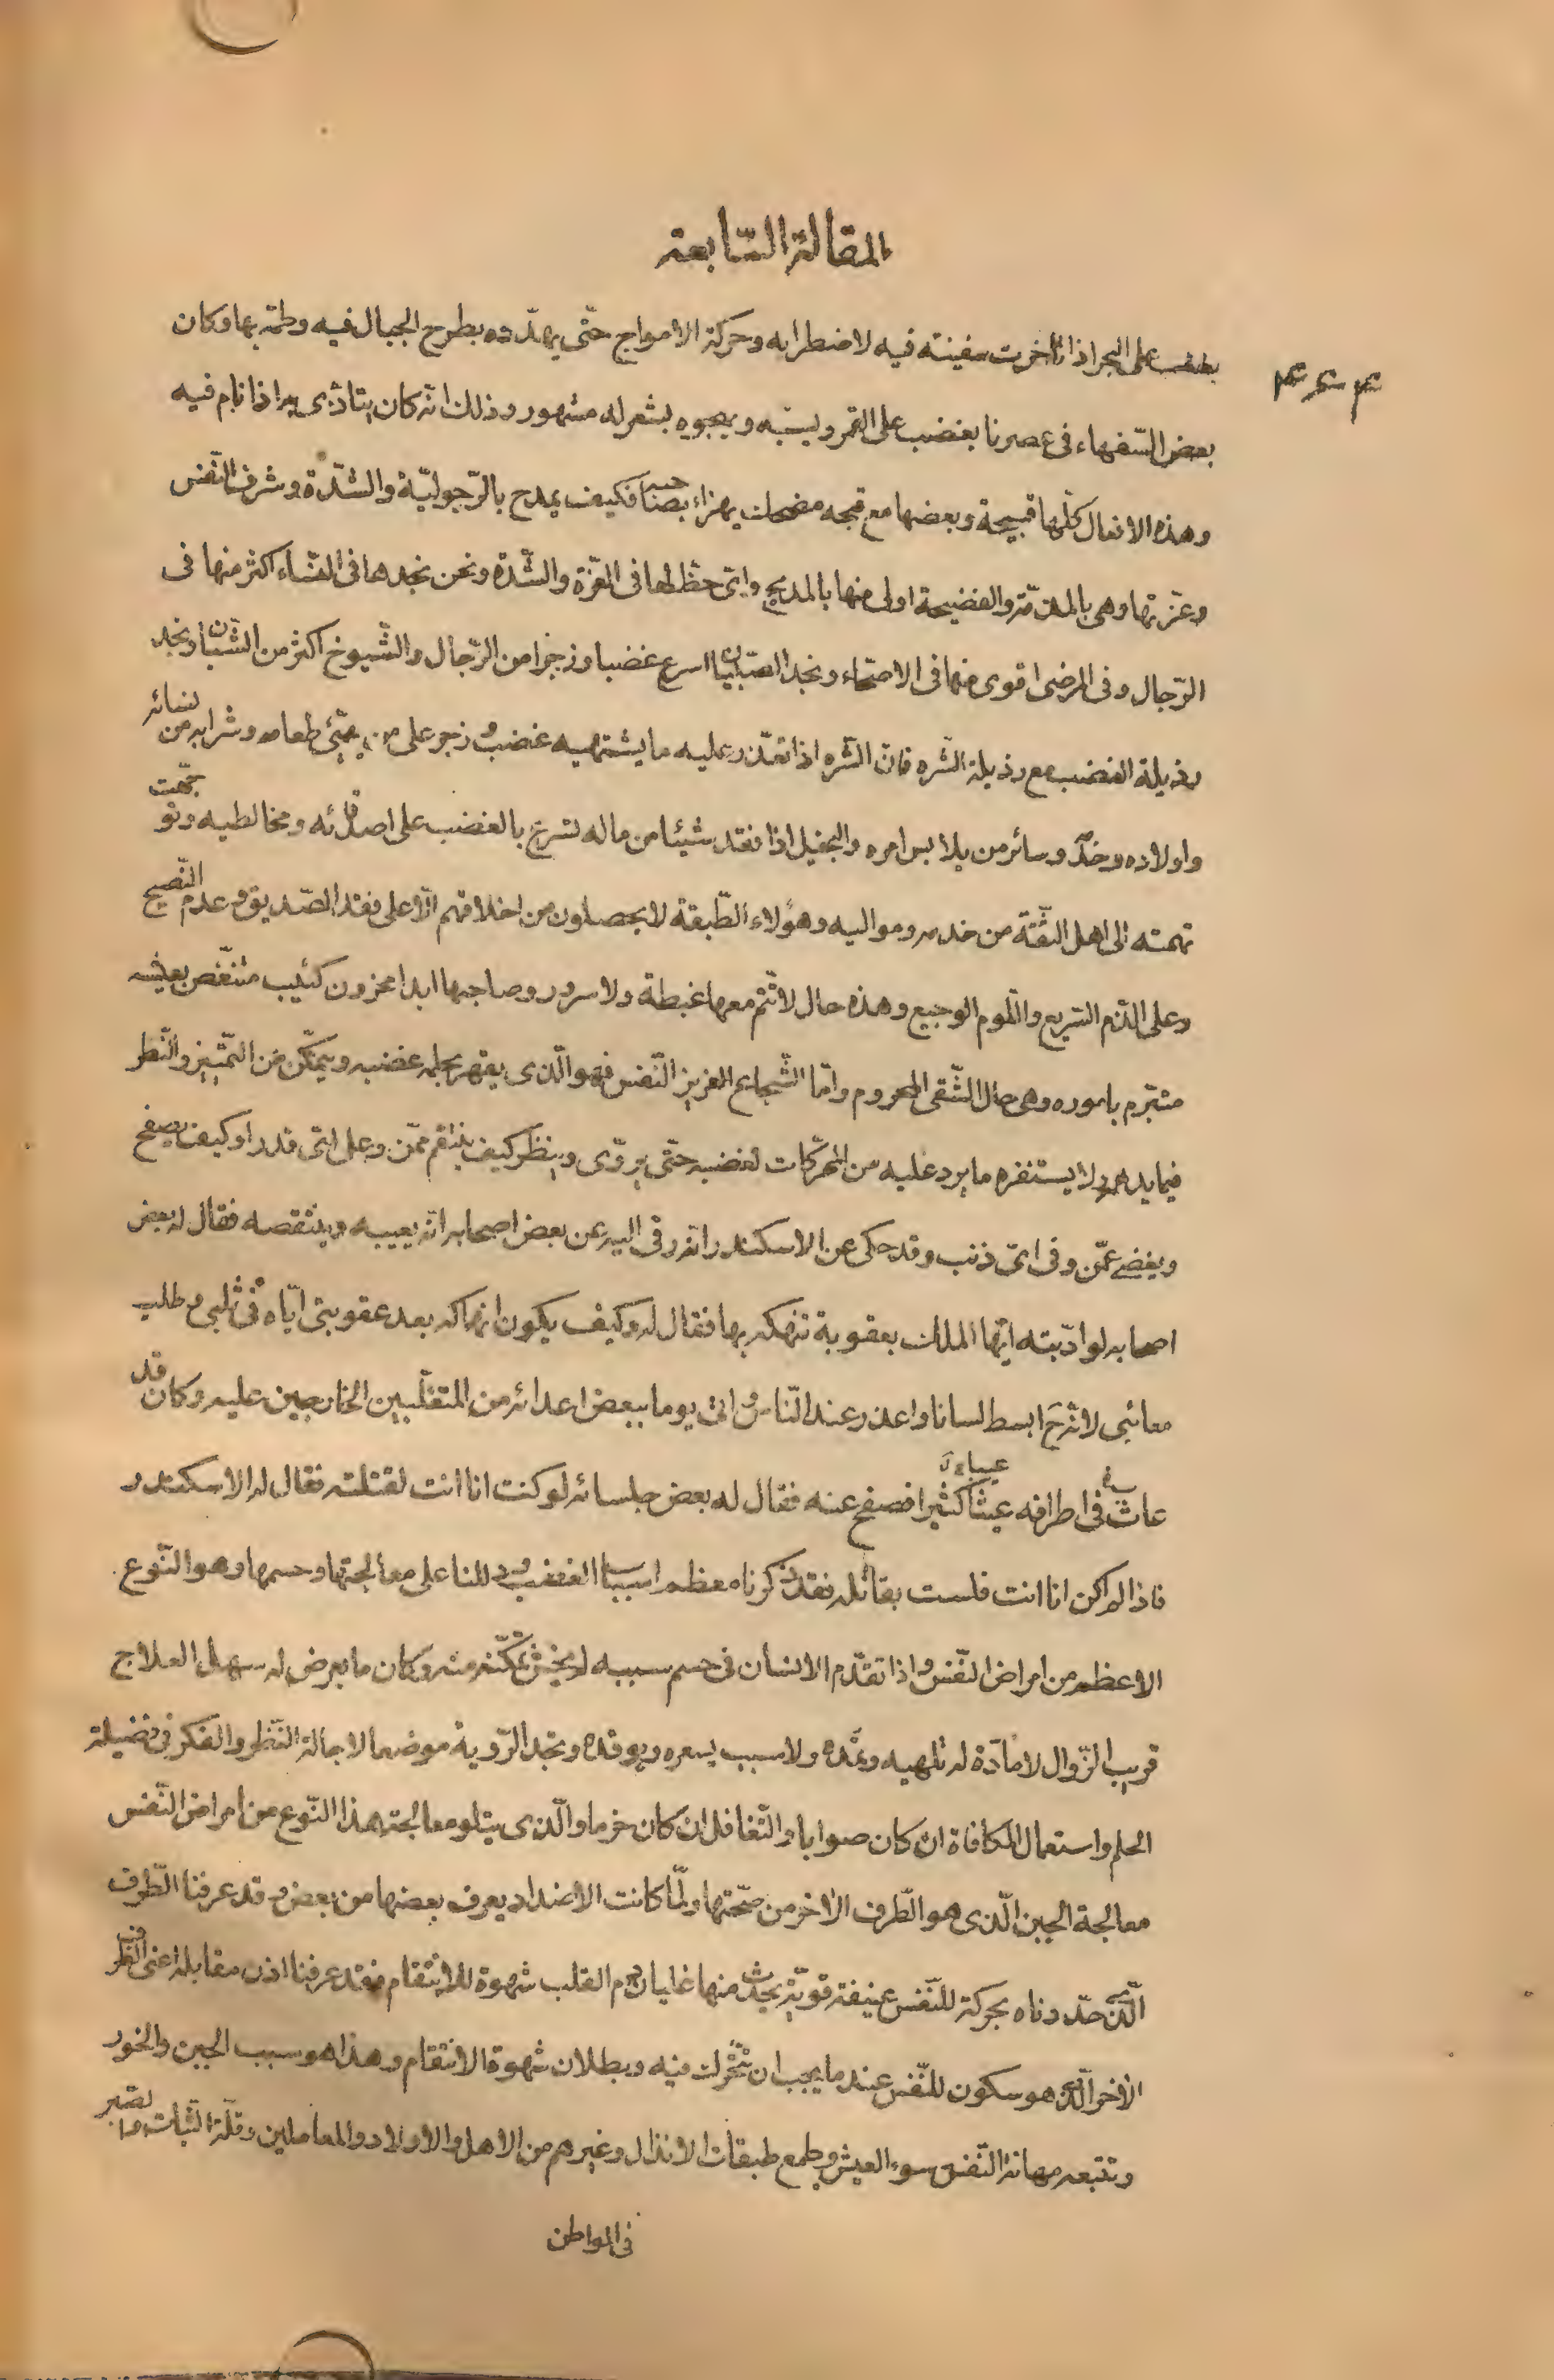 المقالة السّابعة
۴۶۴
يغضب على البحر اذا تأخرت سفينته فيه لاضطرابه وحركة الامواج حتّى يهدّده بطرح الجبال فيه وطمّه بها وكان
بعض السّفهاء فى عصرنا يغضب على القمر ويسبّه ويهجوه بشعر له مشهور وذلك انّه كان يتأذّى به اذا نام فيه
وهذه الافعال كلّها قبيحة وبعضها مع قبحه مضحك يهزاء بصاحبه فكيف يمدح بالرّجوليّة والشّدّة وشرف النّفس
وعزّتها وهى بالمذمّة والفضيحة اولى منها بالمديح واىّ حظّ لها فى العزّة والشّدّة ونحن نجدها فى النّساء اكثر منها فى
الرّجال وفى المرضى اقوى منها فى الاصحّاء ونجد الصّبيان اسرع غضبا وزجرا من الرّجال والشّيوخ اكثر من الشّبّان ونجد
رذيلة الغضب مع رذيلة الشّره فانّ الشّره اذا تعذّر عليه ما يشتهيه غضب وزجر على من يهيّئ طعامه وشرابه من نسائه
واولاده وخدمه وسائر من يلابس امره والبخيل اذا فقد شيئا من ماله تسرّع بالغضب على اصدقائه ومخالطيه وتوجّهت
تهمته الى اهل الثّقة من خدمه ومواليه وهؤلاء الطّبقة لا يحصلون من اخلاقهم الّا على فقد الصّديق وعدم النّصيح
وعلى الذّم السّريع واللّوم الوجيع وهذه حال لا تتمّ معها غبطة ولا سرور وصاحبها ابدا محزون كئيب متنغّص بعيشه
متبرّم باموره وهى حال الشّقى المحروم وامّا الشّجاع العزيز النّفس فهو الّذى يقهر بحلمه غضبه ويتمكّن من التّميّيز والنّظر
فيما يدهمه ولا يستفزه ما يرد عليه من المحرّكات لغضبه حتّى يروّى وينظر كيف ينتقم ممّن وعلى اىّ قدر او كيف يصفح
ويغضى عمّن وفى اىّ ذنب وقد حكى عن الاسكندر انّه رقى اليه عن بعض اصحابه انّه يعيبه وينتقصه فقال له بعض
اصحابه لو ادّبته ايّها الملك بعقوبة تنهكه بها فقال له وكيف يكون انهاكه بعد عقوبتى ايّاه فى ثلبى وطلب
معائبى لانّه ح ابسط لسانا واعذر عند النّاس واتى يوما ببعض اعدائه من المتغلّبين الخارجين عليه وكان قد
عاث فى اطرافه عيثا كثيرا فصفح عنه فقال له بعض جلسائه لو كنت انا انت لقتلته فقال له الاسكندر
فاذا لم اكن انا انت فلست بقاتله فقد ذكرنا معظم اسباب الغضب ودللنا على معالجتها وحسمها وهو النّوع
الاعظم من امراض النّفس واذا تقدّم الانسان فى حسم سببه لم يخش تمكّنه منه وكان ما يعرض له سهل العلاج
قريب الزّوال لا مادّة له تلهبه وتمدّه ولا سبب يسعره ويوقده وتجد الرّوية موضعا لاجالة النّظر والفكر فى فضيلة
الحلم واستعمال المكافاة ان كان صوابا والتّغافل ان كان حزما والّذى يتلو معالجة هذا النّوع من امراض النّفس
معالجة الجبن الّذى هو الطّرف الاخر من صحّتها ولمّا كانت الاضداد يعرف بعضها من بعض وقد عرفنا الطّرف
الّذى حدّدناه بحركة للنّفس عنيفة قويّة يحدث منها غليان دم القلب شهوة للانتقام فقد عرفنا اذن مقابله اعنى الطّرف
الاخر الّذى هو سكون للنّفس عند ما يجب ان تتحّرك فيه وبطلان شهوة الانتقام وهذا هو سبب الجبن والخور
وتتبعه مهانة النّفس سوء العيش وطمع طبقات الانذال وغيرهم من الاهل والاولاد والمعاملين وقلّة الثّبات والصّبر
فى المواطن